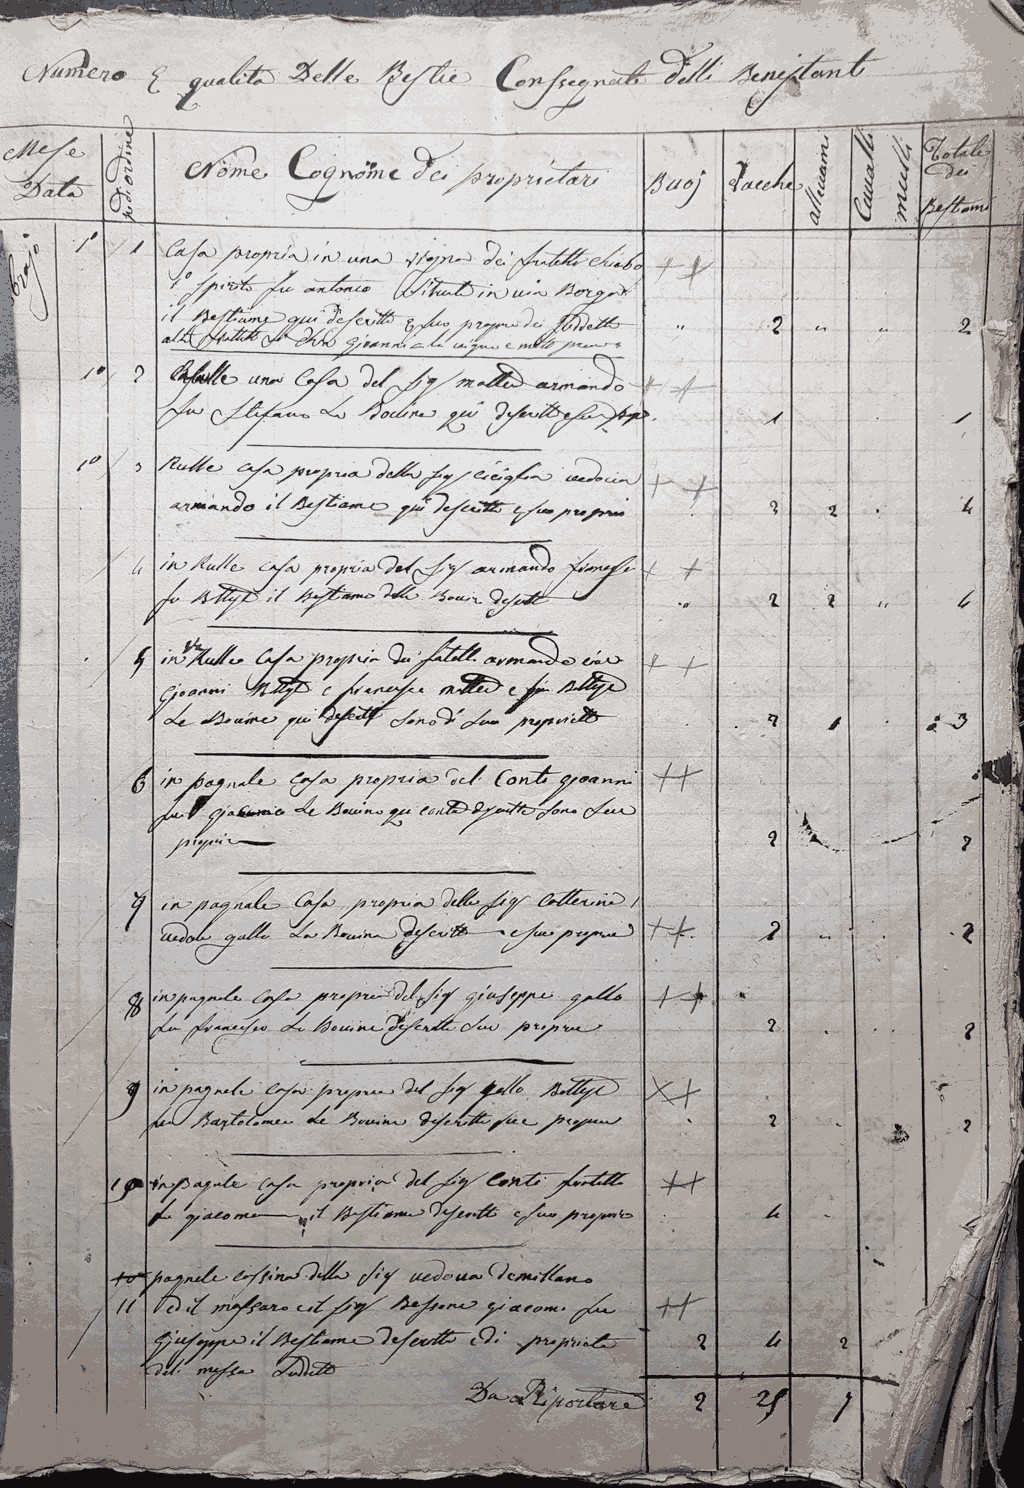 Numero E qualita Delle Bestie Conssegnate delli Benestanti
Mese Data
N di ordine
Nome Cognome dei proprietari
Buoj
Vacche
allevami
Cavalli
mulli
Totale dei Bestiami
1° 1 Casa propria in una vigna dei fratelli
Spirito fu antonio situata in via Borgo
il Bestiame qui descritto e suo proprio dei suddetti " 2 " " 2
1° 2 una Casa del sig matteo armando
fu Stefano Le Bovine qui descritte 1 1
1° 3 Rulle casa propria della sig ciciglia vedova
armando il Bestiame qui descritto e suo proprio 2 2 4
4 in Rulle casa propria del sig armando
fu Bttyt il Bestiame delle Bovine descritte " 2 2 " 4
5 in Rulle Casa propria dei fratelli armando cioe
gioanni e francesco matteo e fu Battyt
Le Bovine qui descritte sono di suo proprieta 2 1 3
6 in pagnale casa propria del Conte gioanni
fu Le Bovine qui contro descritte sono sue
proprie 2 2
7 in pagnale Casa propria della sig Catterina
vedova gallo La Bovina descritta e sue proprie 2 " 2
8 in pagnale casa propria del sig giuseppe gallo
fu francesco Le Bovine descritte sue proprie 2 2
9 in pagnale casa propria del sig gallo Battyt
fu Bartolomeo Le Bovine descritte sue proprie 2 2
10 in Pagnale casa propria del sig Conti fratelli
fu giacomo il Bestiame descritto e suo proprio 4
10 pagnale cassina della sig vedova demillano
11 ed il massaro e il sig Bessone giacomo fu
Giuseppe il Bestiame descritto e di proprieta 2 4 2
del massa suddetto
Da Riportare 2 25 7